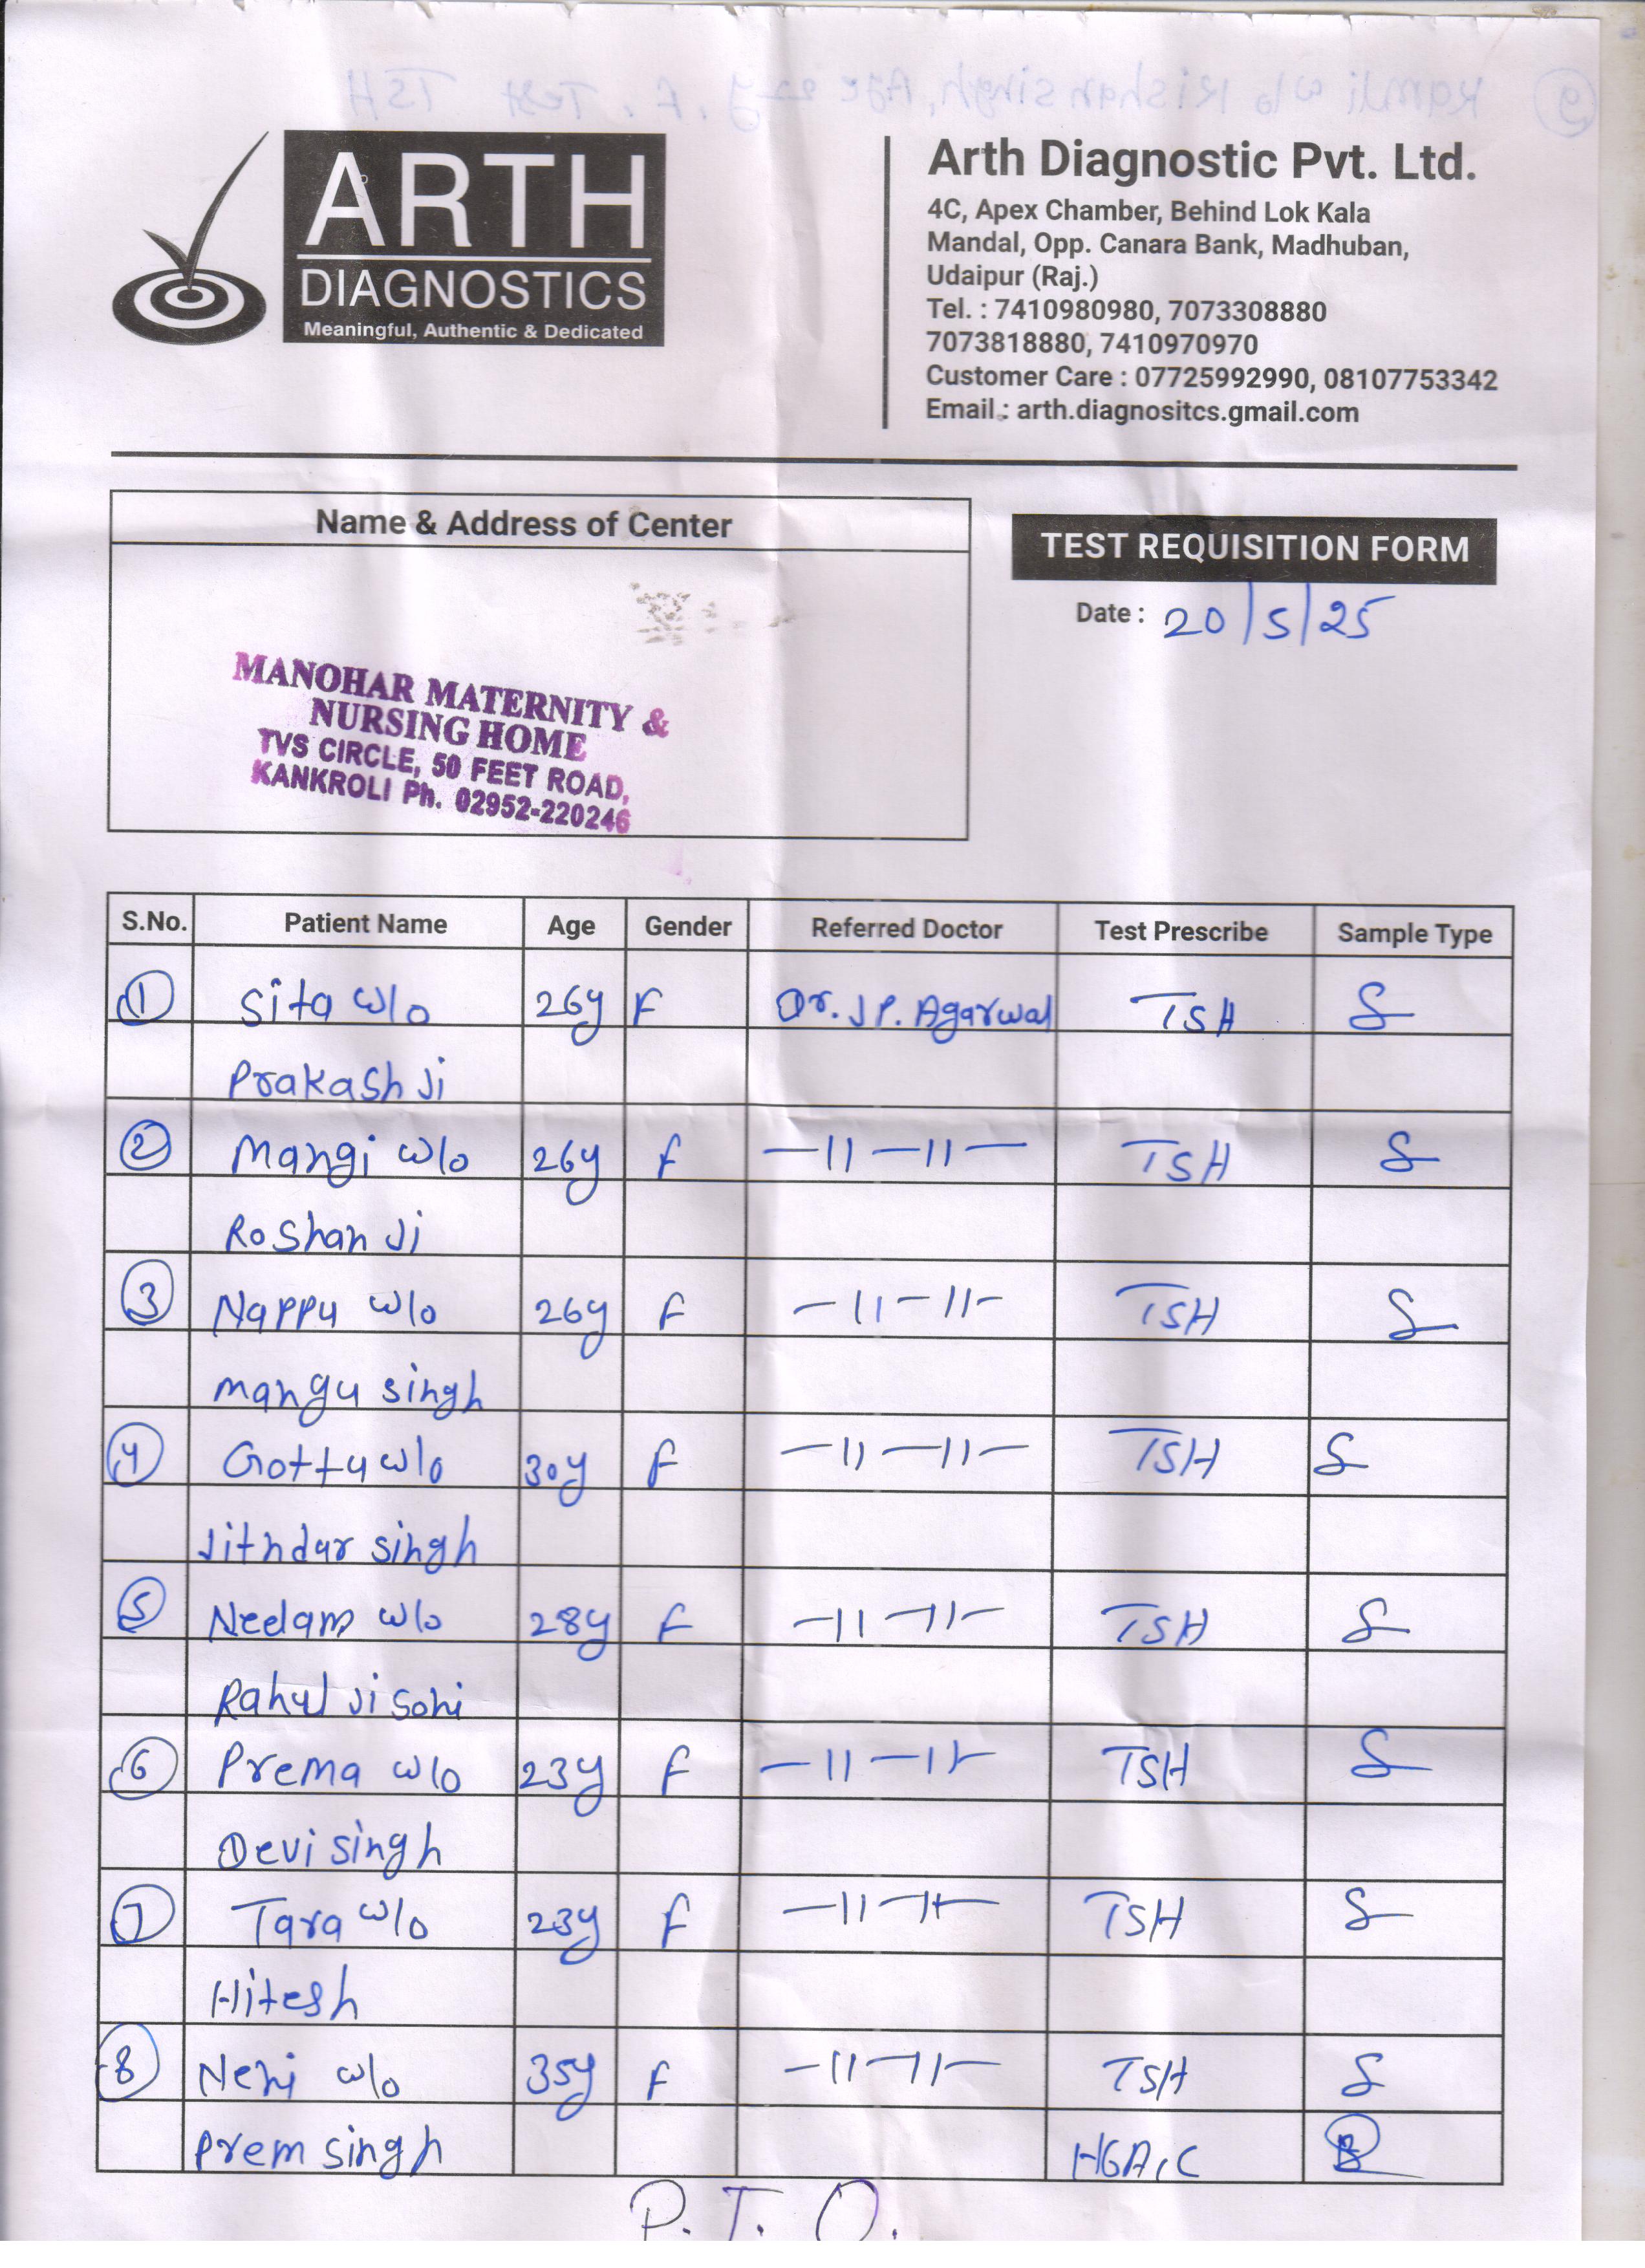 ARTH
DIAGNOSTICS
Meaningful, Authentic & Dedicated
Arth Diagnostic Pvt. Ltd.
4C, Apex Chamber, Behind Lok Kala
Mandal, Opp. Canara Bank, Madhuban,
Udaipur (Raj.)
Tel. : 7410980980, 7073308880
7073818880, 7410970970
Customer Care : 07725992990, 08107753342
Email : arth.diagnositcs.gmail.com
Name & Address of Center
MANOHAR MATERNITY &
NURSING HOME
TVS CIRCLE, 50 FEET ROAD,
KANKROLI Ph. 02952-220246
TEST REQUISITION FORM
Date : 20/5/25
S.No. Patient Name Age Gender Referred Doctor Test Prescribe Sample Type
1 Sita w/o 26y F Dr. J P. Agarwal TSH S
Prakash Ji
2 Mangi w/o 26y F —11—11— TSH S
Roshan Ji
3 Nappu w/o 26y F —11—11— TSH S
Mangu singh
4 Gottu w/o 30y F —11—11— TSH S
Jithdar singh
5 Neelam w/o 28y F —11—11— TSH S
Rahul Ji Soni
6 Prema w/o 23y F —11—11— TSH S
Devi singh
7 Tara w/o 23y F —11—11— TSH S
Hitesh
8 Neni w/o 35y F —11—11— TSH S
Prem singh HGA1C
P.T.O.